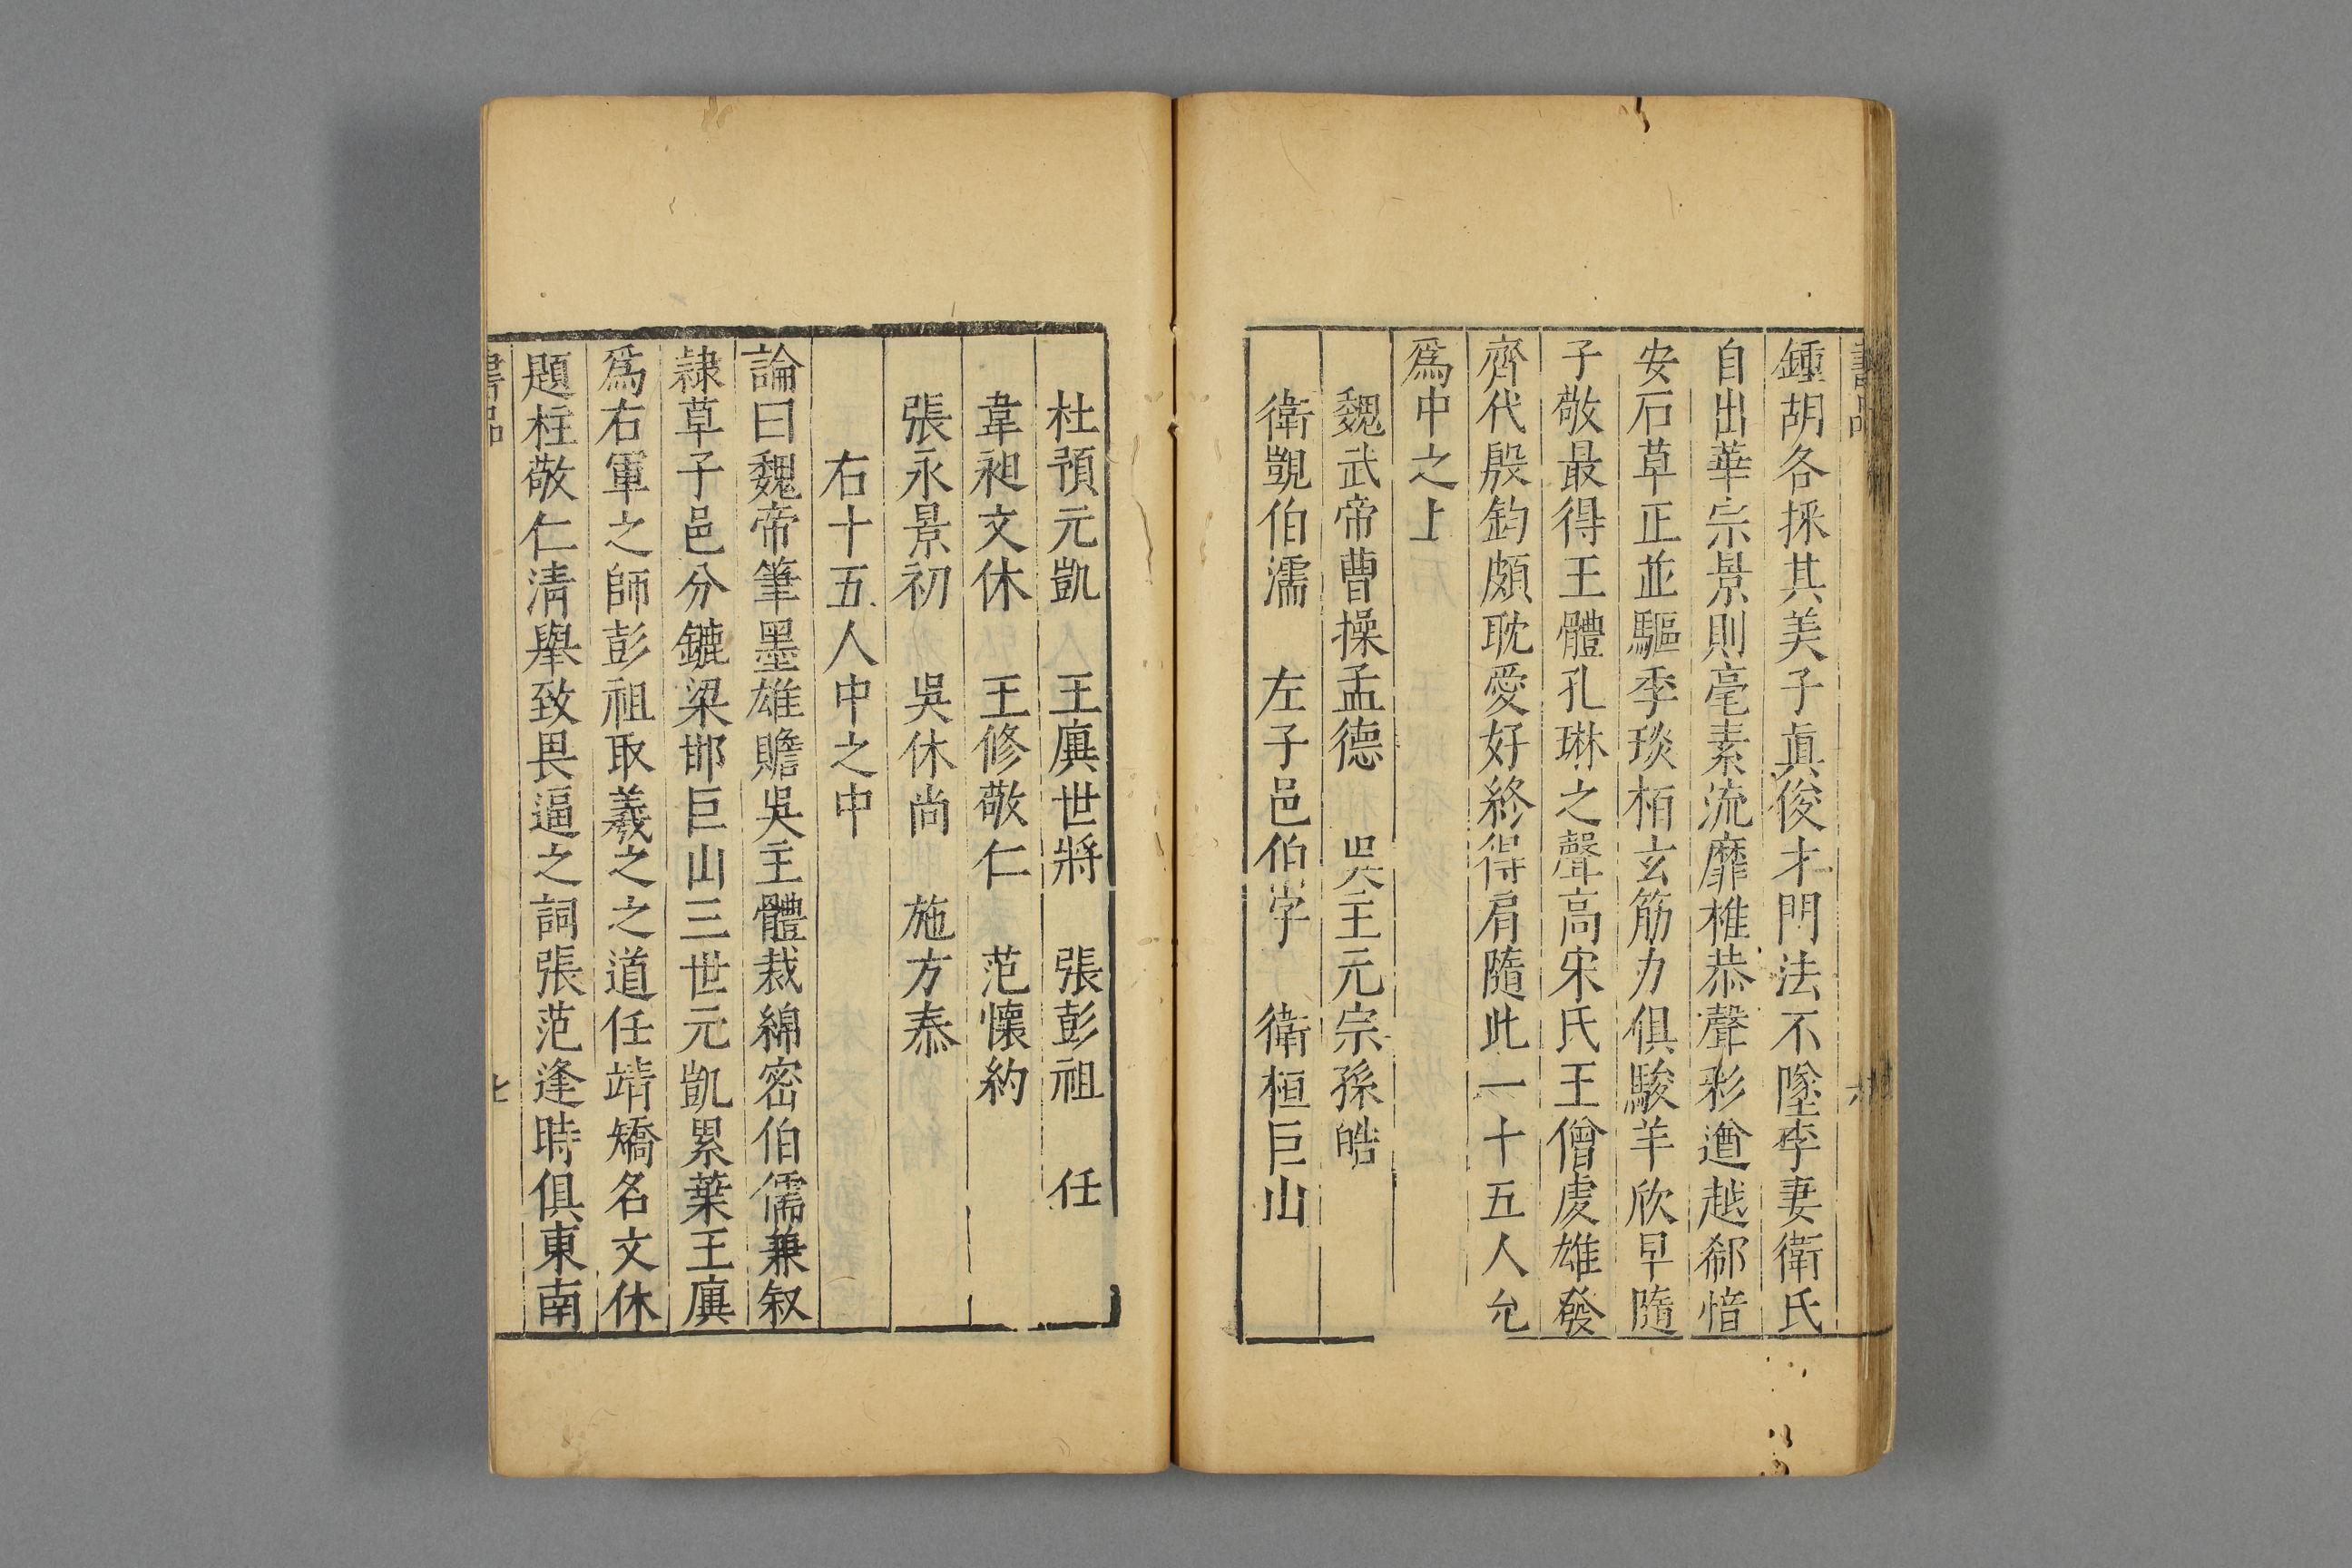 書品 六
鍾胡各採其美子眞俊才門法不墜李妻衛氏
自出華宗景則毫素流靡稚恭聲彩遒越郗愔
安石草正並驅季琰栢玄筋力俱駿羊欣早隨
子敬最得王體孔琳之聲高宋氏王僧虔雄發
齊代殷鈞頗耽愛好終得肩隨此一十五人允
爲中之上
魏武帝曹操孟德 吳主元宗孫皓
衛覬伯濡 左子邑伯字 衛桓巨山
杜預元凱 王廙世將 張彭祖 任
韋昶文休 王修敬仁 范懷約
張永景初 吳休尚 施方泰
右十五人中之中
論曰魏帝筆墨雄贍吳主體裁綿密伯儒兼叙
隸草子邑分鑣梁邯巨山三世元凱累葉王廙
爲右軍之師彭祖取羲之之道任靖矯名文休
題柱敬仁清舉致畏逼之詞張范逢時俱東南
書品 七